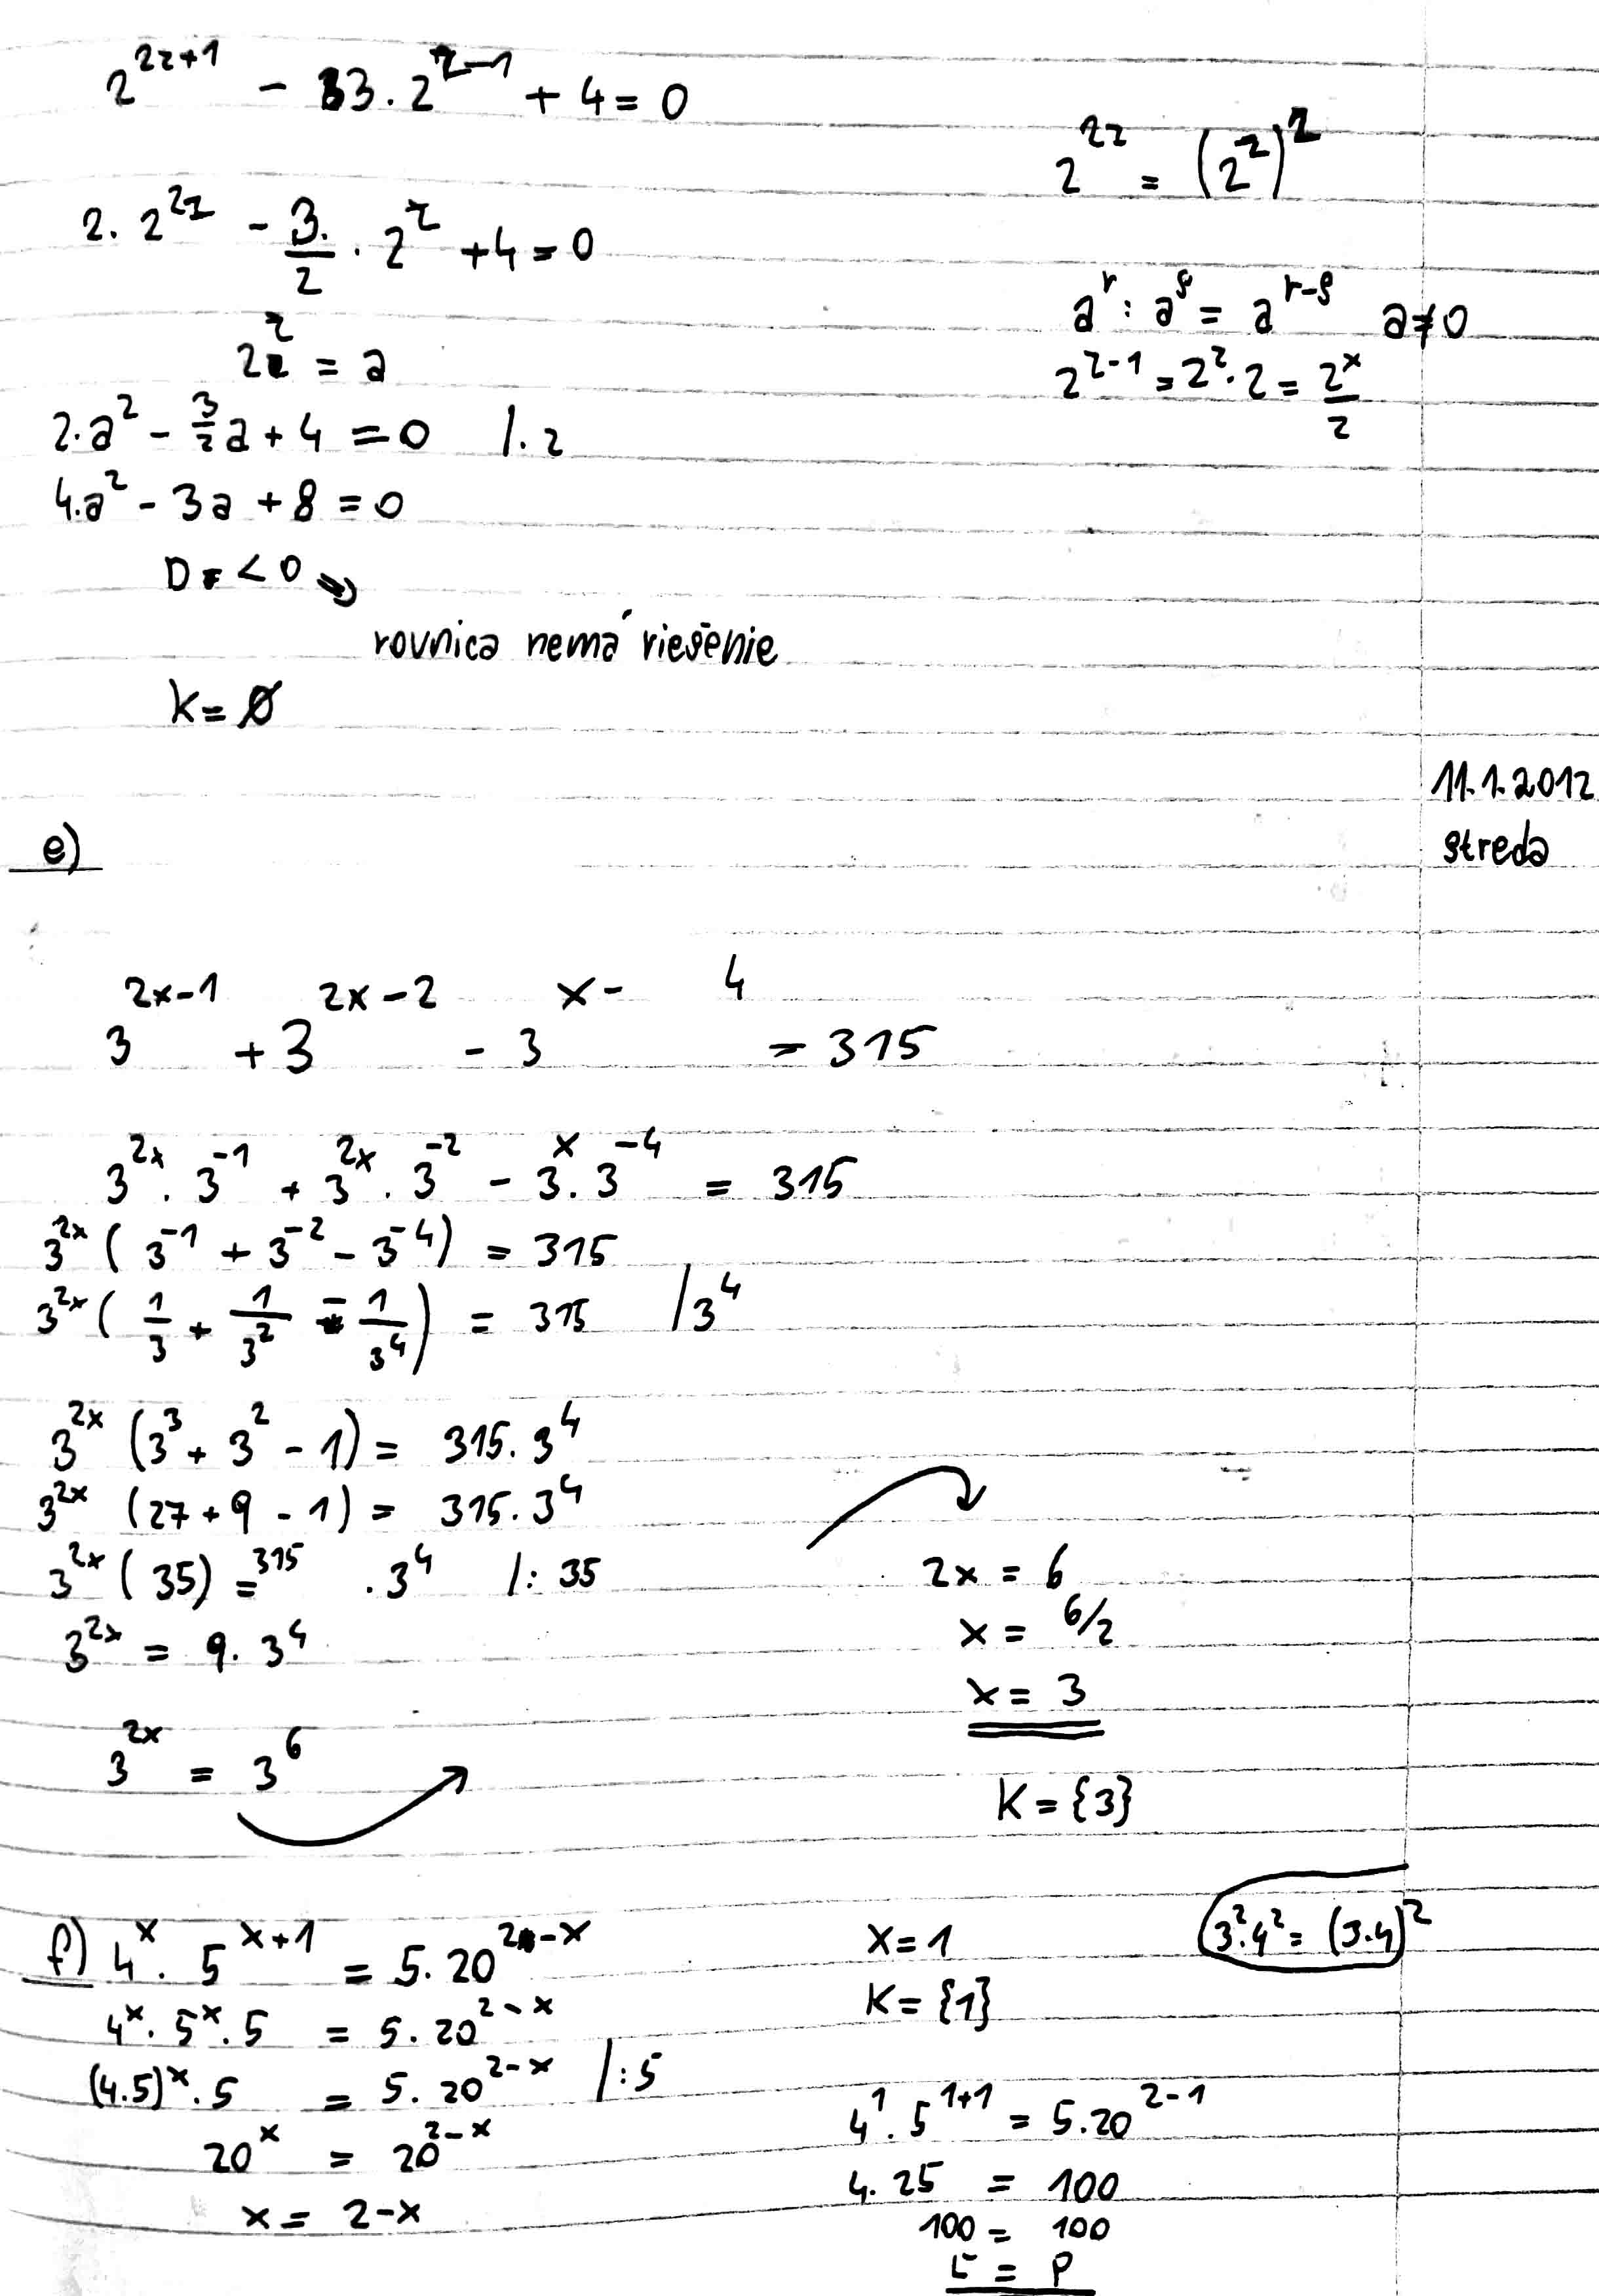 2^{2z+1} - 33 · 2^{z-1} + 4 = 0
2^{2z} = (2^z)^2
2 · 2^{2z} - 3/2 · 2^z + 4 = 0
a^r : a^s = a^{r-s} a ≠ 0
2^z = a
2^{z-1} = 2^z · 2 = 2^x/2
2·a^2 - 3/2 a + 4 = 0 /·2
4·a^2 - 3a + 8 = 0
D = < 0 ⇒
rovnica nemá riešenie
K = ∅
11.1.2012
streda
e)
3^{2x-1} + 3^{2x-2} - 3^{x-4} = 315
3^{2x} · 3^{-1} + 3^{2x} · 3^{-2} - 3^x · 3^{-4} = 315
3^{2x} (3^{-1} + 3^{-2} - 3^{-4}) = 315
3^{2x} (1/3 + 1/3^2 - 1/3^4) = 315 /3^4
3^{2x} (3^3 + 3^2 - 1) = 315 · 3^4
3^{2x} (27 + 9 - 1) = 315 · 3^4
3^{2x} (35) = 315 · 3^4 /: 35
3^{2x} = 9 · 3^4
3^{2x} = 3^6
2x = 6
x = 6/2
x = 3
K = {3}
f) 4^x · 5^{x+1} = 5 · 20^{2-x}
4^x · 5^x · 5 = 5 · 20^{2-x}
(4·5)^x · 5 = 5 · 20^{2-x} /:5
20^x = 20^{2-x}
x = 2-x
x = 1
K = {1}
3^2·4^2 = (3·4)^2
4^1 · 5^{1+1} = 5·20^{2-1}
4 · 25 = 100
100 = 100
Ľ = P